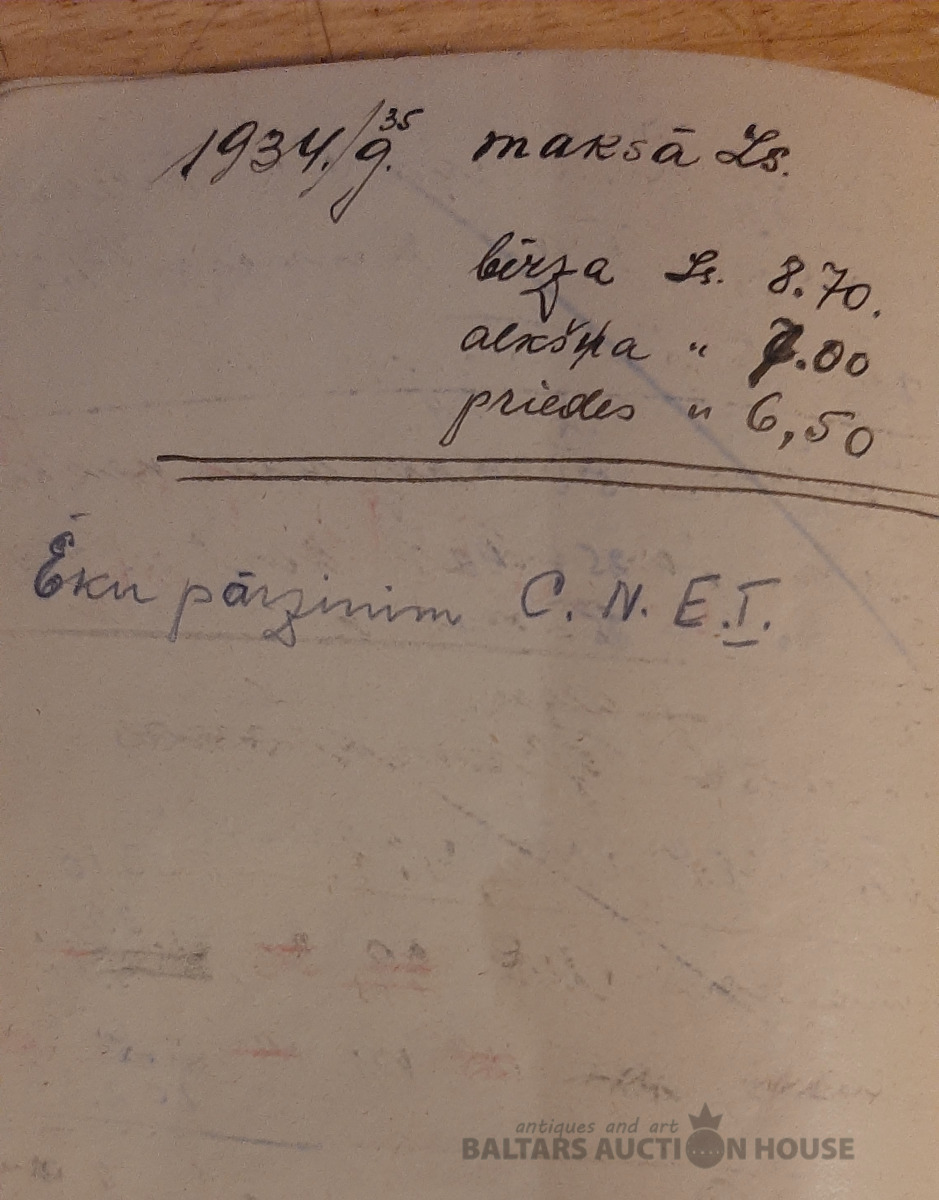 1934./35 g. maksā Ls.
bērza Ls. 8.70.
alkšņa " 7.00
priedes " 6,50
Ēku pārzinim C. N. E. I.
antiques and art
BALTARS AUCTION HOUSE